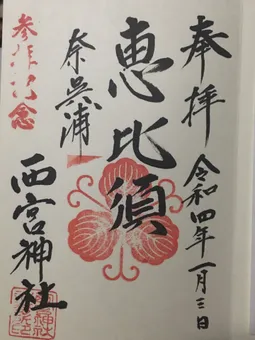 奉拝
令和四年一月三日
恵比須
奈呉浦
西宮神社